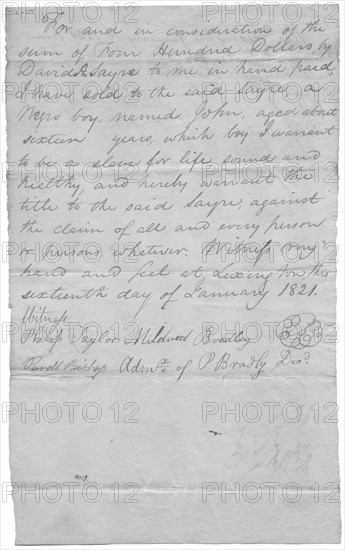 For and in consideration of the
sum of Four Hundred Dollars by
David A Sayre to me in hand paid,
I have sold to the said Sayre a
Negro boy, named John, aged about
sixteen years, which boy I warrant
to be a slave for life, sound and
healthy, and hereby warrant the
title to the said Sayre, against
the claim of all and every person
or persons whatever. Witness my
hand and seal at Lexington this
sixteenth day of January 1821.
Witness
Philip Taylor Mildred Bradley
Admx of P Bradly Decd